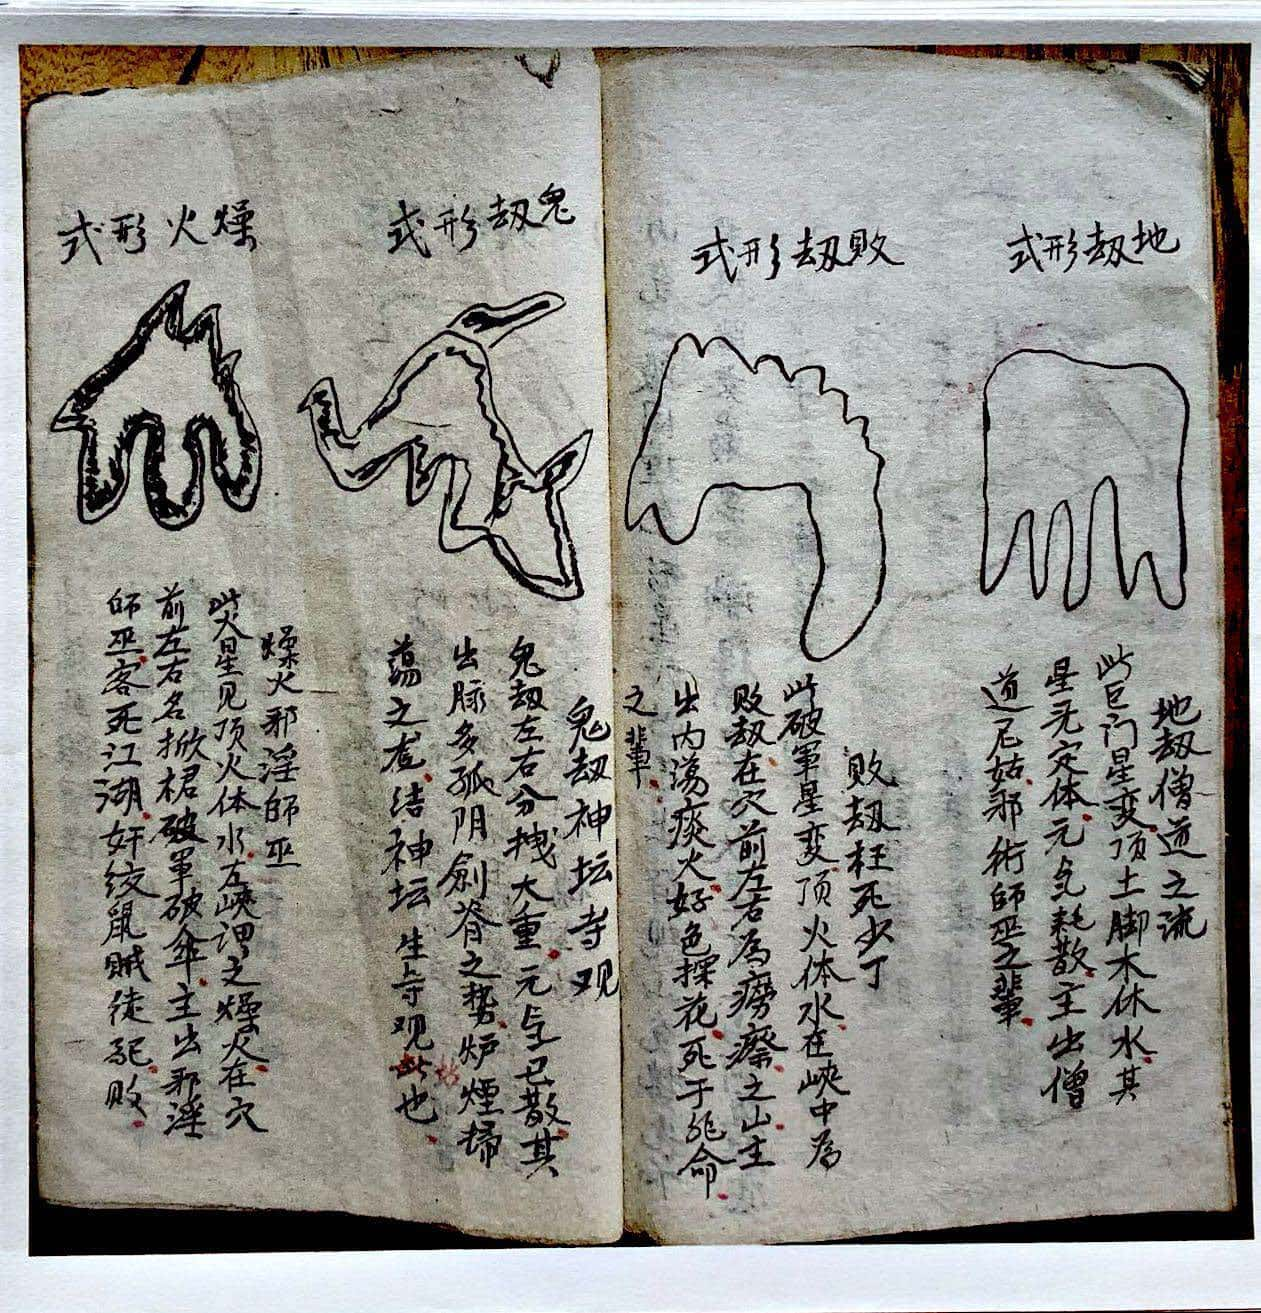 地刼形式
地刼僧道之流
此巨门星变顶土脚木体水其
星无定体元气耗散主出僧
道尼姑邪術師巫之輩
敗刼形式
敗刼枉死少丁
此破軍星变顶火体水在峽中為
敗刼在穴前左右為癆瘵之山主
出内荡痰火好色採花死于非命
之輩
鬼刼形式
鬼刼神坛寺观
鬼刼左右分拽大重元气已散其
出脉多孤阴劍脊之势炉煙掃
蕩之	结神坛生寺观此也
燥火形式
燥火邪淫師巫
此火星见顶火体水左峽谓之燥火在穴
前左右名掀裙破軍破傘主出邪淫
師巫客死江湖奸绞鼠贼徒配敗